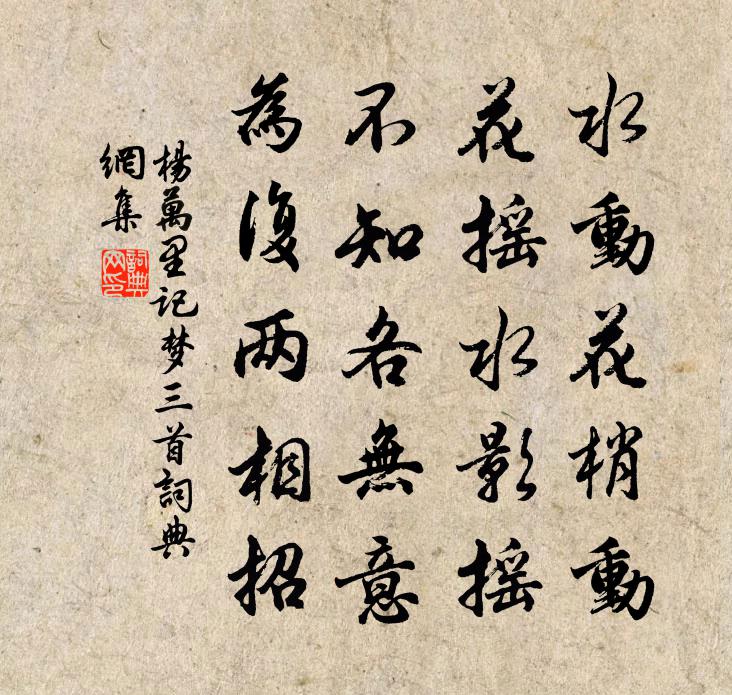 水動花梢動
花摇水影摇
不知各無意
為復两相招
楊萬里记梦三首詞典
網集
詞典
网印